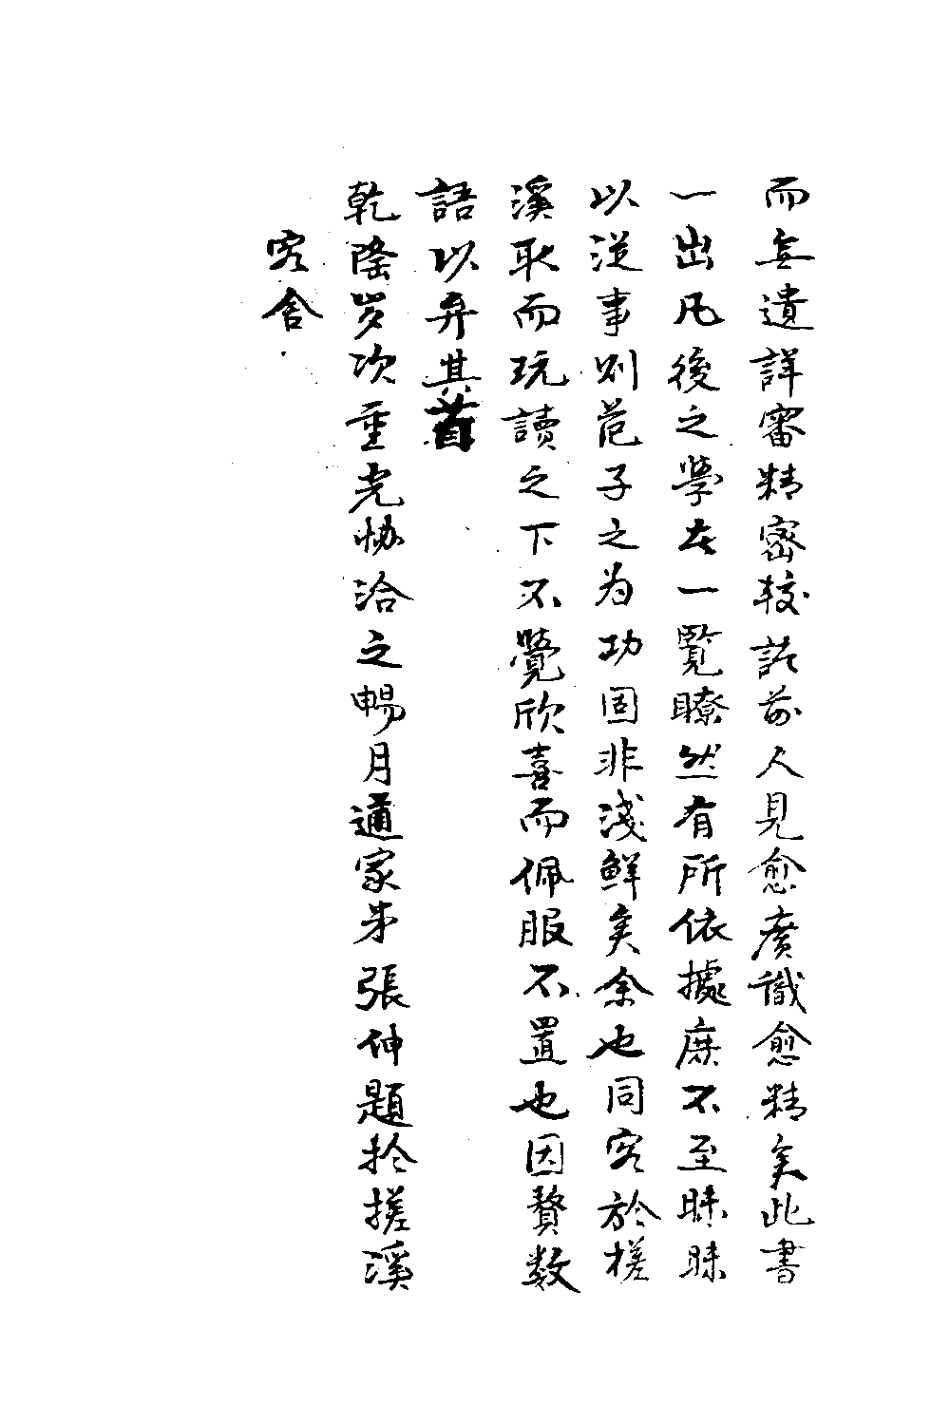 而無遺詳審精密較諸前人見愈廣識愈精矣此書
一出凡後之學者一覧瞭然有所依據庶不至昧昧
以從事则范子之为功固非淺鮮矣余也同客於槎
溪取而玩讀之下不覺欣喜而佩服不置也因贅数
語以弁其首
乾隆岁次重光协洽之暢月通家弟張伸題扵槎溪
客舍